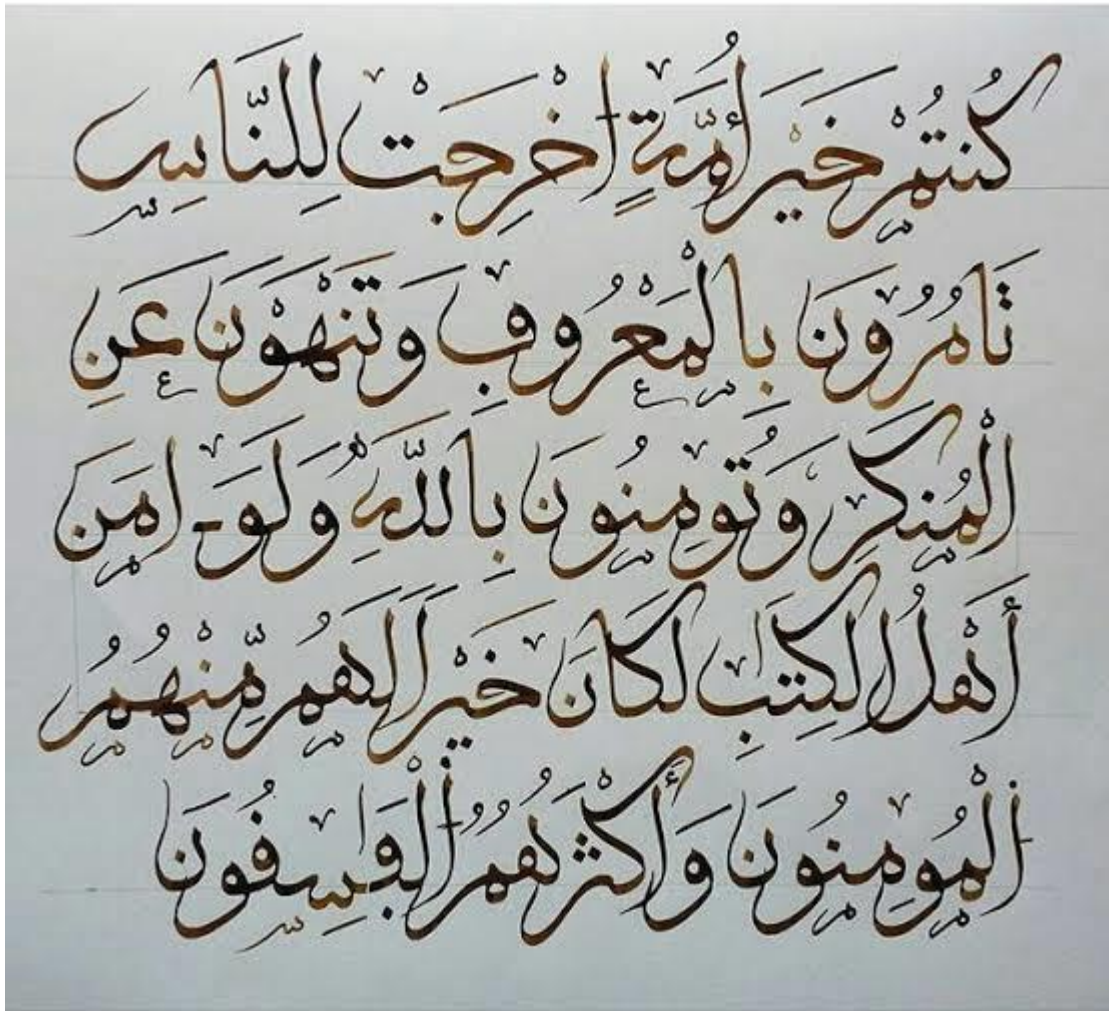 كُنتُمْ خَيْرَ أُمَّةٍ اخْرِجَتْ لِلنَّاسِ
تَامُرُونَ بِالْمَعْرُوفِ وَتَنْهَوْنَ عَنِ
الْمُنكَرِ وَتُومِنُونَ بِاللَّهِ وَلَوَ امَنَ
أَهْلُ الْكِتَٰبِ لَكَانَ خَيْراً لَّهُم مِّنْهُمُ
الْمُومِنُونَ وَأَكْثَرُهُمُ الْفَٰسِقُونَ